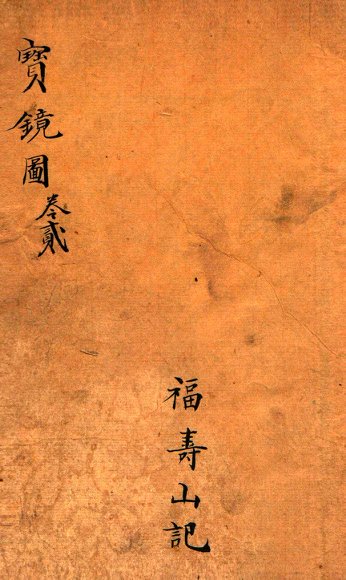 寶鏡圖卷貳
福壽山記